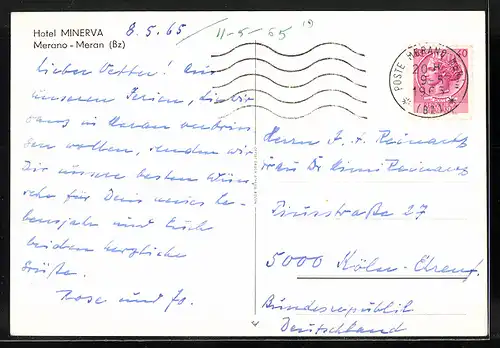 Hotel MINERVA
Merano - Meran (Bz)
8.5.65
11-5-65
Lieber Vetter! Aus
unseren Ferien, die wir
ganz in Meran verbrin-
gen wollen, senden wir
Dir unsere besten Wün-
sche für Dein neues Le-
bensjahr und Euch
beiden herzliche
Grüße.
Rose und Jo.
POSTE MERANO
1965
(BZ)
40
Herrn
Frau Dr
27
5000 Köln-Ehrenf.
Bundesrepublik
Deutschland